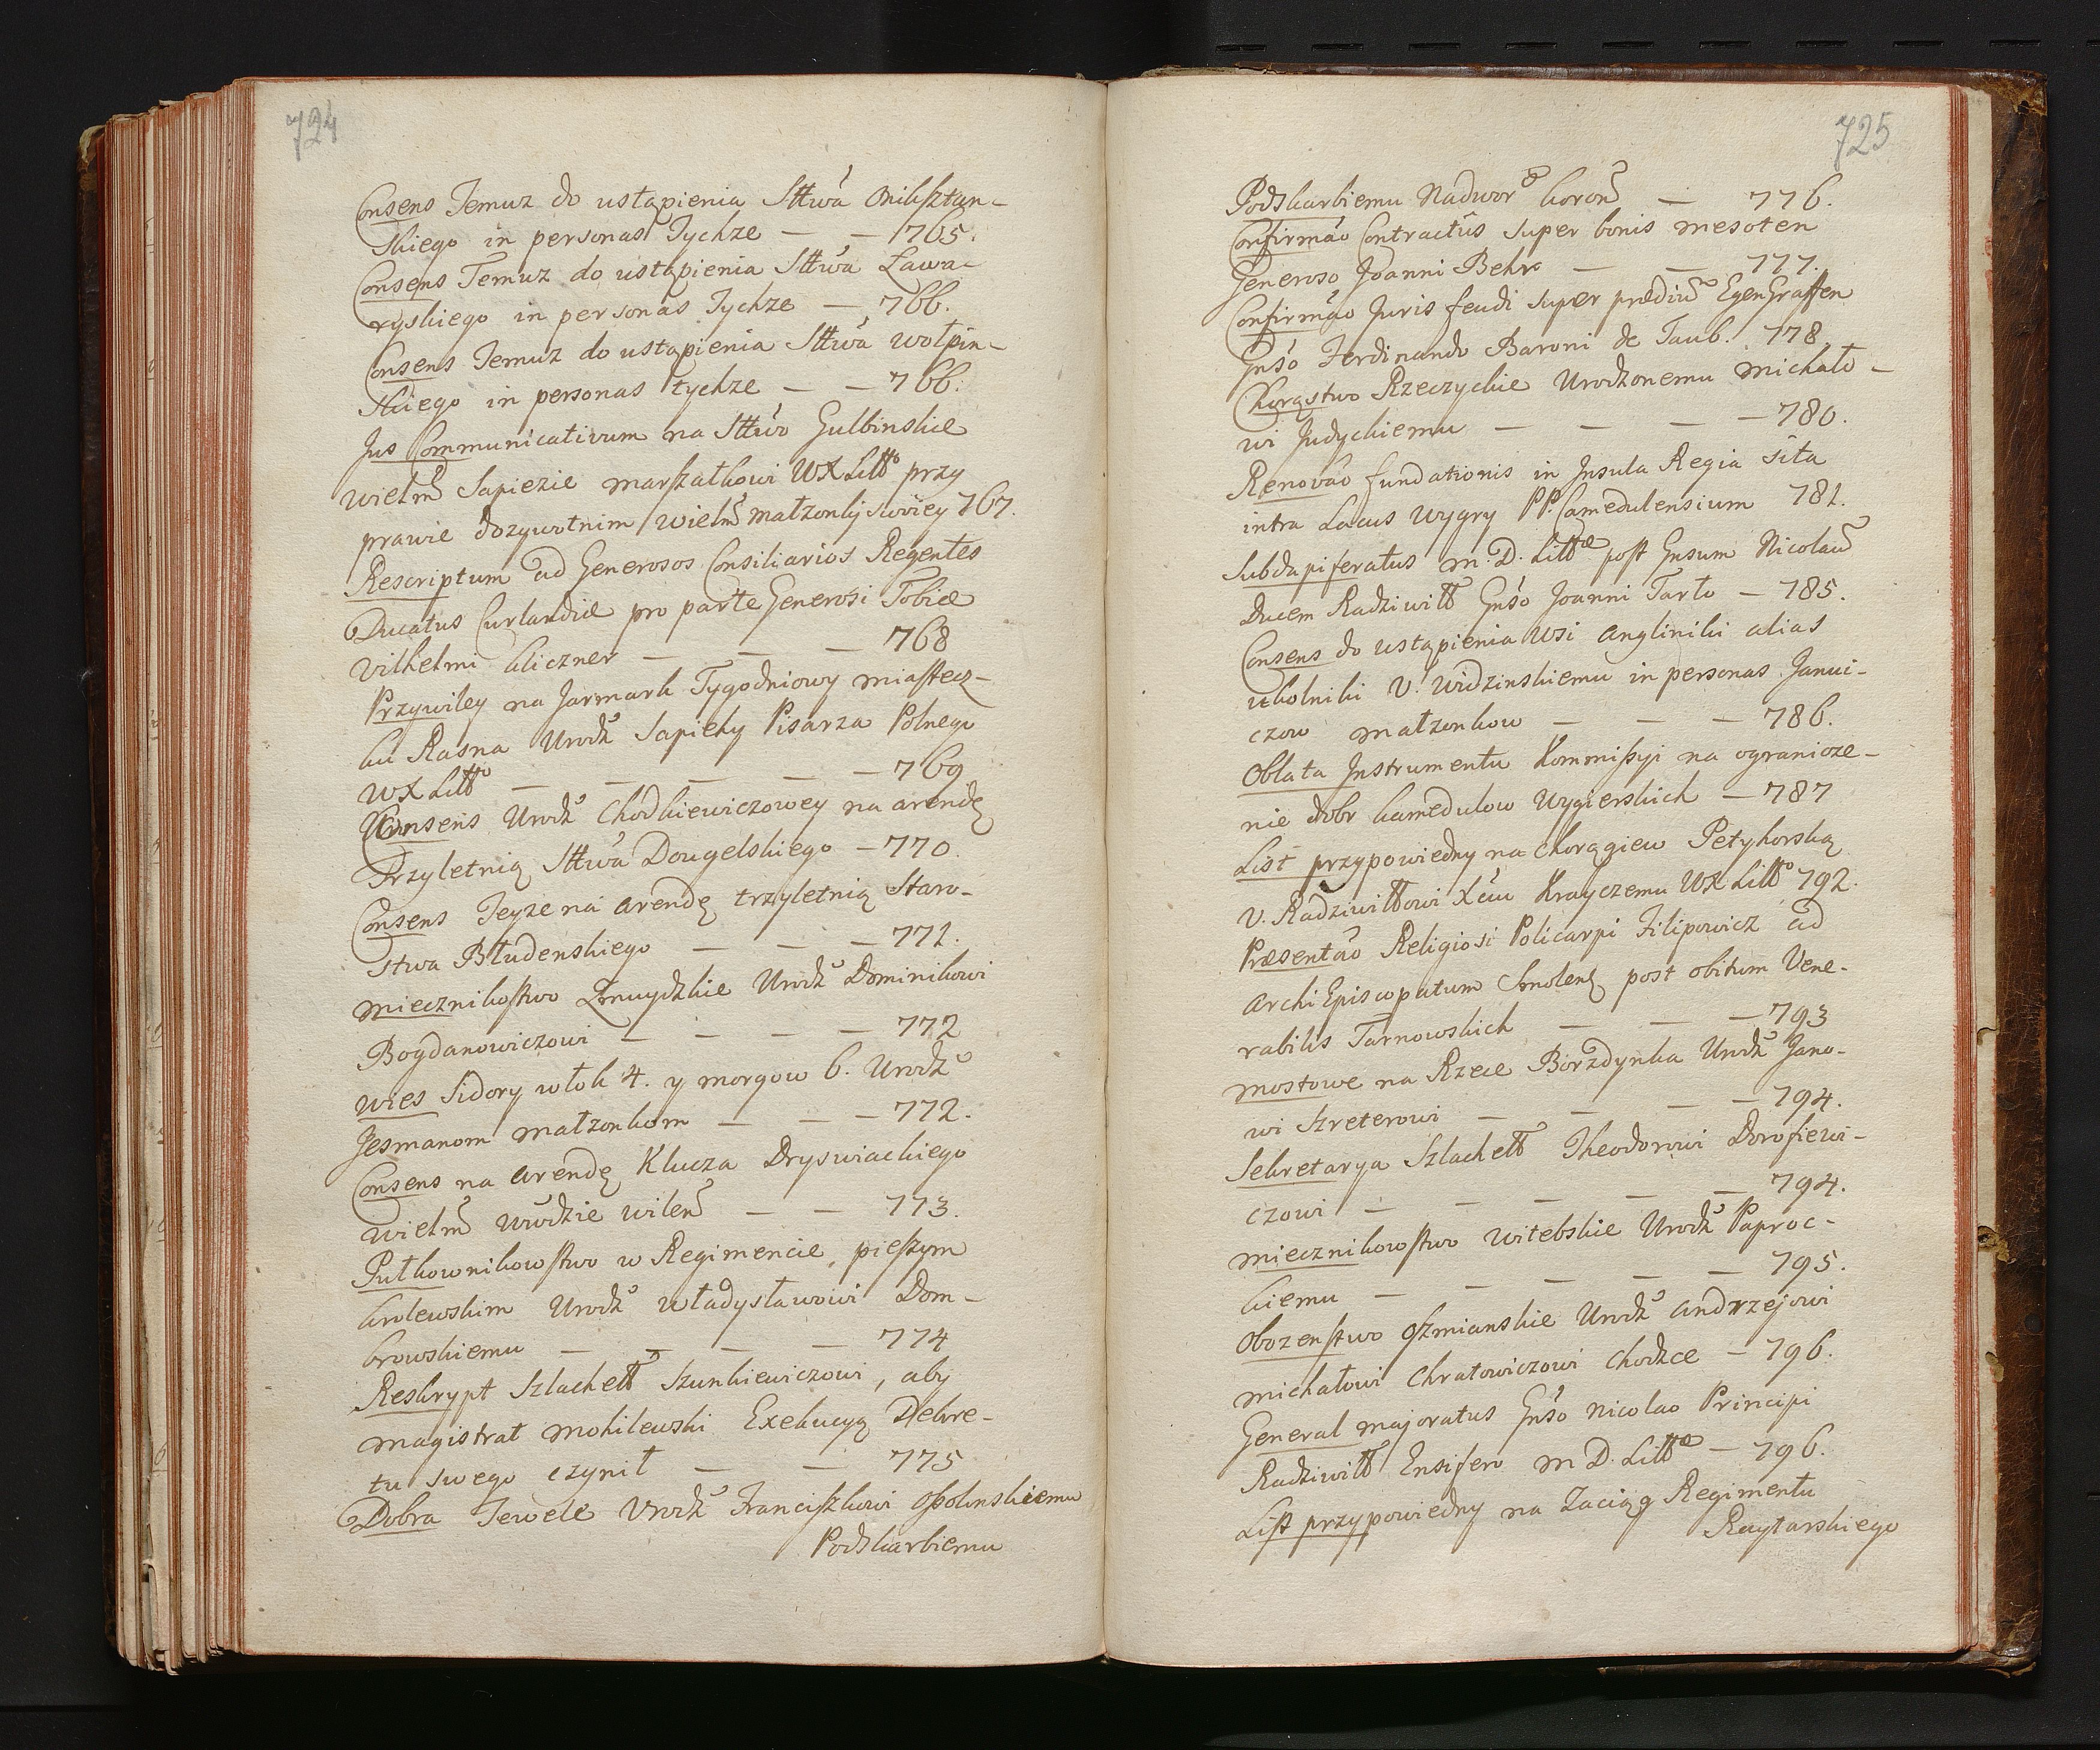 724
Consens Temuz do ustąpienia Sttwa Miksztan-
skiego in personas Tychze — — 765.
Consens Temuz do ustąpienia Sttwa Ława-
ryskiego in personas Tychze — 766.
Consens Temuz do ustąpienia Sttwa wołpin-
skiego in personas tychze — — 766.
Jus Communicativum na Sttwo Gulbinskie
wielm Sapiezie marszałkowi WX Litto przy
prawie dozywotnim wielm małzonky swoiey 767.
Rescriptum ad Generosos Consiliarios Regentes
Ducatus Curlandiæ pro parte Generosi Tobiæ
Vilhelmi kliczner — — — 768
Przywiley na Jarmark Tygodniowy miastecz-
ku Rasna Urodz Sapiehy Pisarza Polnego
WX Litto — — — — 769
Consens Urodz Chodkiewiczowey na arendę
Trzyletnią Sttwa Dougelskiego — 770.
Consens Teyze na arendę trzyletnią Staro-
stwa Błudenskiego — — — 771.
miecznikostwo Zmuydzkie Urodz Dominikowi
Bogdanowiczowi — — — — 772
wies Sidory włok 4. y morgow 6. Urodz
Jesmanom małzonkom — — — 772.
Consens na arendę Klucza Dryswiackiego
wielm wwdzie wilen — — 773.
Pułkownikowstwo w Regimencie, pieszym
krolewskim Urodz władysławowi Dom-
browskiemu — — — — 774
Reskrypt Szlachett Szunkiewiczowi, aby
magistrat mohilewski Exekucyą Dekre-
tu swego czynił — — 775
Dobra Tewele Urodz Franciszkowi Ossolinskiemu
Podskarbiemu
725
Podskarbiemu Nadwor koron — 776.
Confirmao Contractus super bonis mesoten
Generoso Joanni Behr — — 777.
Confirmao Juris feudi super prædiu EgenGraffen
Gnso Ferdinando Baroni de Taub. 778.
Chorąstwo Rzeczyckie Urodzonemu michało-
wi Judyckiemu — — — — 780.
Renovao fundationis in Insula Regia sita
intra Lacus Wygry PP. Camedulensium 781.
Subdapiferatus M. D. Littæ post Gnsum Nicolau
Ducem Radziwill Gnso Joanni Tarło — 785.
Consens do ustąpienia wsi Anglinikii alias
ukolniki V. Widzinskiemu in personas Janui-
czow małzonkow — — — 786.
Oblata Instrumentu Kommissyi na ogranicze-
nie dobr kamedulow Wygierskich — 787
List przypowiedny na chorągiew Petyhorską
V. Radziwiłłowi Xciu Krayczemu WX Litto 792.
Præsentao Religiosi Policarpi Filipowicz ad
Archi Episcopatum Smolens post obitum Vene-
rabilis Tarnowskich — — — 793
mostowe na Rzece Borzdynka Urodz Jano-
wi Szreterowi — — — — 794.
Sekretarya Szlachett Theodorowi Dorofiewi-
czowi — — — — — 794.
miecznikowstwo witebskie Urodz Paproc-
kiemu — — — — — 795.
Obozenstwo Oszmianskie Urodz Andrzejowi
michałowi Chrałowiczowi Chodzce — 796.
General majoratus Gnso Nicolao Principi
Radziwill Ensifero M D. Littæ — 796.
List przypowiedny na Zaciąg Regimentu
Raytarskiego